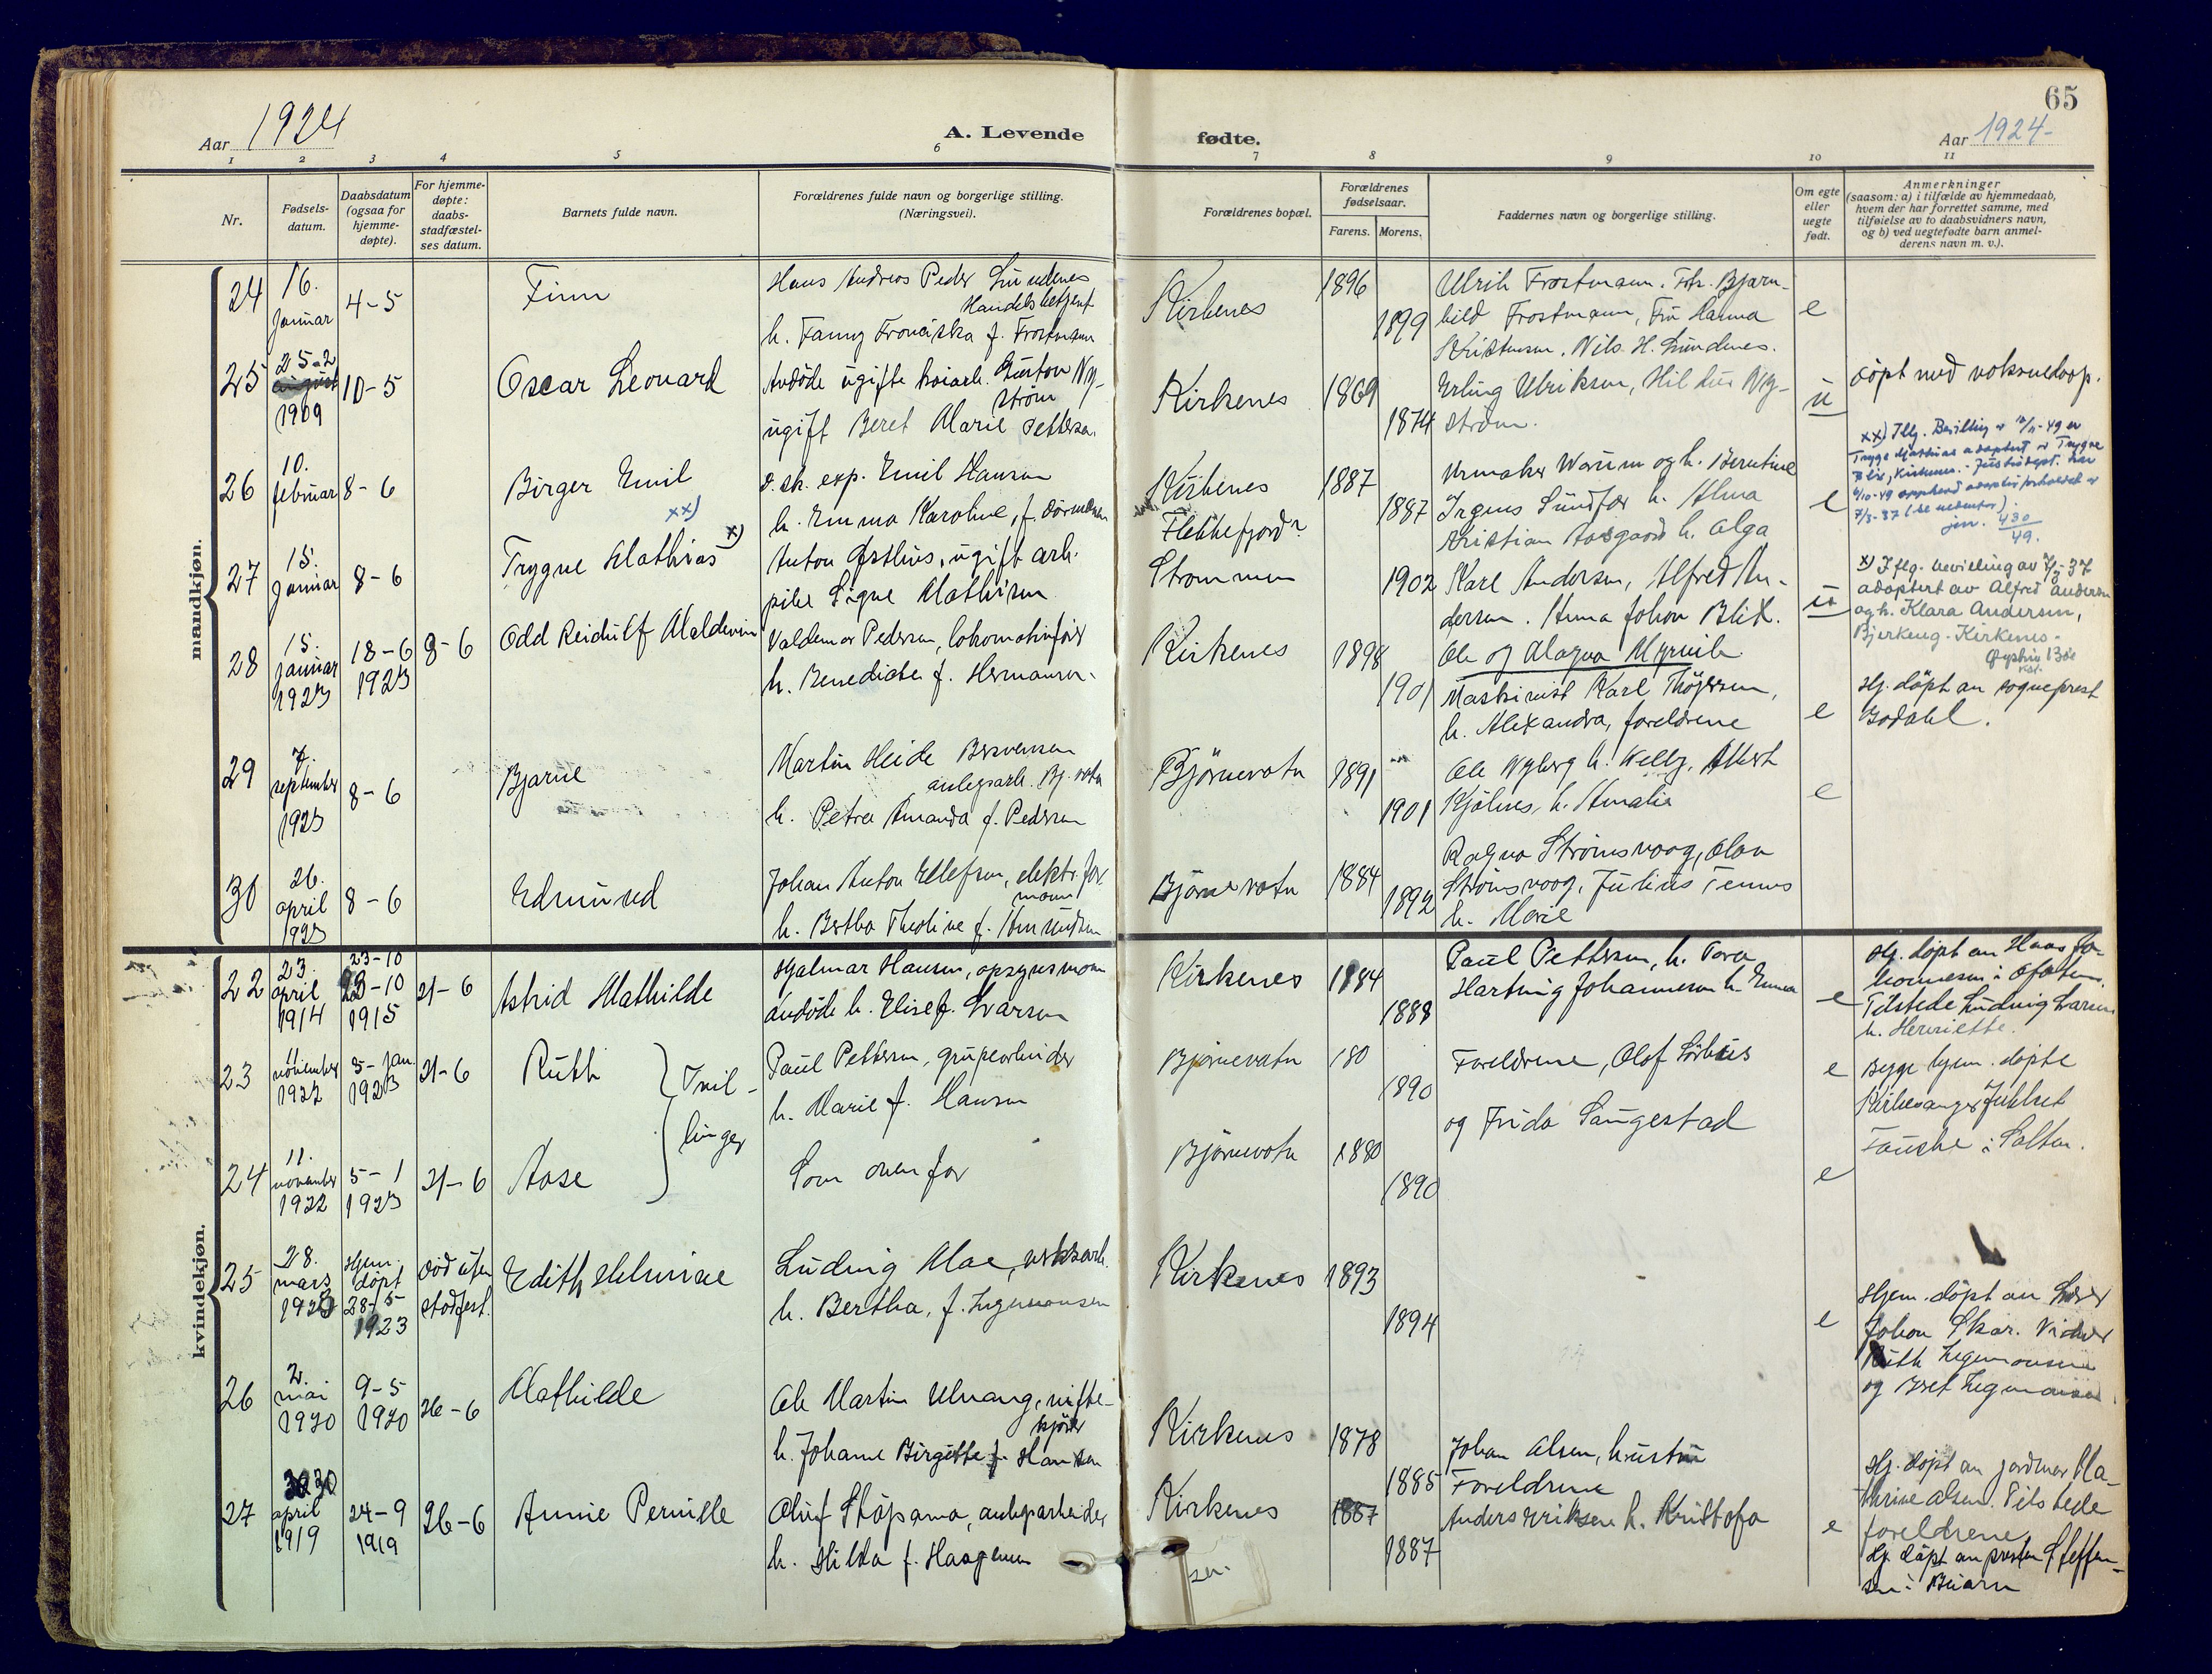 65
Aar 1924
A. Levende
fødte.
Aar 1924-
1 2 3 4 5 6 7 8 9 10 11
Nr.
Fødsels-
datum.
Daabsdatum
(ogsaa for
hjemme-
døpte).
For hjemme-
døpte:
daabs-
stadfæstel-
ses datum.
Barnets fulde navn.
Forældrenes fulde navn og borgerlige stilling.
(Næringsvei).
Forældrenes bopæl.
Forældrenes
fødselsaar.
Farens. Morens.
Faddernes navn og borgerlige stilling.
Om egte
eller
uegte
født.
Anmerkninger
(saasom: a) i tilfælde av hjemmedaab,
hvem der har forrettet samme, med
tilføielse av to daabsvidners navn,
og b) ved uegtefødte barn anmel-
derens navn m. v.).
mandkjøn.
24
16.
Januar
4-5
Finn
Hans Andreas Peder Lundenes
Handelsbetjent
h. Fanny Franciska f. Frostmann
Kirkenes
1896
1899
Ulrik Frostmann. Frk. Bjarn-
hild Frostmann, Fru Hanna
Kristensen. Nils H. Lundenes.
e
25
25-2
august
1909
10-5
Oscar Leonard
Avdöde ugifte Gustav Ny-
ström
ugift Beret Marie Pettersen.
Kirkenes
1869
1874
Erling Ulriksen, Hildur Ny-
ström.
u
döpt med voksnedaap.
26
10.
februar
8-6
Birger Emil
d.sk. exp. Emil Hansen
h. Emma Karoline, f.
Kirkenes
Flekkefjord?
1887
1887
Urmaker Warum og h. Berntine
Sundfær h. Alma
Kristian Aasgaard h. Olga
e
xx) Iflg. Bevilling av 12/11-49 er
Trygve Mathias adoptert av Trygve
Blix, Kirkenes. - Justisdept. har
6/10-49 opphevd adoptivforholdet av
7/3-37 (se nedenfor).
jnr. 430/49.
27
15.
Januar
8-6
Trygve Mathias
xx) x)
Anton Østhus, ugift arb.
pike Signe Mathisen
Strommen
1902
Karl Andersen, Alfred An-
dersen. Anna Johan Blix.
u
x) Iflg. bevilling av 7/3-37
adoptert av Alfred Andersen
og h. Klara Andersen,
Bjerkeng - Kirkenes-
Øystein Bøe
28
15.
Januar
1923
18-6
1923
8-6
Odd Reidulf Maldevin
Valdemar Pedersen, lokomotivförer
h. Benedicte f. Hermansen.
Kirkenes
1898
1901
Ole og Magna Myrvik
Maskinist Karl Thögersen,
h. Alexandra, foreldrene
e
Hj. döpt av sogneprest
Bodahl.
29
7.
september
1923
8-6
Bjarne
Martin Heide Besvensen
anlegsarb. Bj. vatn
h. Petra Amanda f. Pedersen
Björnevatn
1891
1901
Ole Nyberg h. Nelly, Albert
Kjölnes, h. Amalie
e
30
26.
april
1923
8-6
Edmund
Johan Anton Ellefsen, elektr. for
mann
h. Bertha Theoline f. Amundsen
Björnevatn
1884
1892
Ragna Strömsvaag, Olav
Strömsvaag, Julius Tennes
h. Marie
kvindekjøn.
22
23.
april
1914
23-10
23-10
1915
21-6
Astrid Mathilde
Hjalmar Hansen, opsynsmann
Avdöde h. Elise f. Ivarsen
Kirkenes
1884
1888
Paul Pettersen, h. Tora
Hartvig Johannesen h. Emma
e
Hj. döpt av Hans Jo-
hannesen i Ofoten.
Tilstede Ludvig Larsen
h. Henriette.
23
11
november
1922
5-Jan.
1923
21-6
Ruth
Tvil-
linger
Paul Pettersen, grupearbeider
h. Marie f. Hansen
Björnevatn
180
1890
Foreldrene, Olof Sörhus
og Frida Saugestad
e
Begge hjem. döpte
Kirkesanger Juklset
Fauske i Salten.
24
11.
november
1922
5-1
1923
21-6
Aase
Som ovenfor
Björnevatn
1880
1890
e
25
28.
mars
1923
Hjem.
döpt
28-5
1923
död uten
stadfest.
Edith Helmine
Ludvig Moe, verksarb.
h. Bertha, f. Ingemansen
Kirkenes
1893
1894
e
Hjem. döpt av Lærer
Johan Skar. Vidner
Ruth Ingemansen
og Beret Ingemansen.
26
2.
mai
1920
9-5
1920
26-6
Mathilde
Ole Martin Ulvang, vifte-
kjörer
h. Johanne Birgitte f. Hansen
Kirkenes
1878
1885
Johan Olsen, hustru
Foreldrene
Hj. döpt av jordmor Ma-
thine Olsen. Tilstede
foreldrene
27
30
april
1919
24-9
1919
26-6
Annie Pernille
Oluf Stöpamo, anlegsarbeider
h. Hilda f. Haagensen
Kirkenes
1887
1887
Anders Eriksen h. Kristofa
e
Hj. döpt av presten Steffen-
sen i Beiarn
sen.